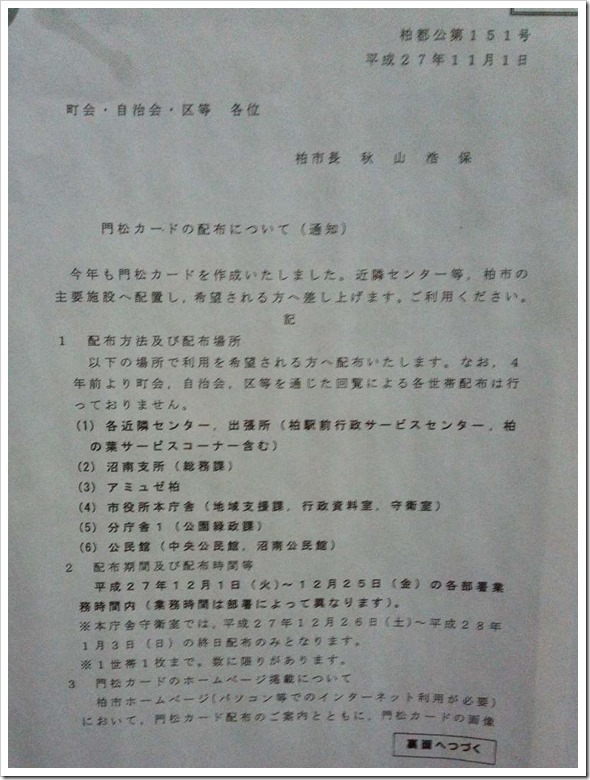 柏都公第１５１号
平成２７年１１月１日
町会・自治会・区等　各位
柏市長　秋　山　浩　保
門松カードの配布について（通知）
今年も門松カードを作成いたしました。近隣センター等，柏市の
主要施設へ配置し，希望される方へ差し上げます。ご利用ください。
記
１　配布方法及び配布場所
以下の場所で利用を希望される方へ配布いたします。なお，４
年前より町会，自治会，区等を通じた回覧による各世帯配布は行
っておりません。
(1) 各近隣センター，出張所（柏駅前行政サービスセンター，柏
の葉サービスコーナー含む）
(2) 沼南支所（総務課）
(3) アミュゼ柏
(4) 市役所本庁舎（地域支援課，行政資料室，守衛室）
(5) 分庁舎１（公園緑政課）
(6) 公民館（中央公民館，沼南公民館）
２　配布期間及び配布時間等
平成２７年１２月１日（火）～１２月２５日（金）の各部署業
務時間内（業務時間は部署によって異なります）。
※本庁舎守衛室では，平成２７年１２月２６日（土）～平成２８年
１月３日（日）の終日配布のみとなります。
※１世帯１枚まで。数に限りがあります。
３　門松カードのホームページ掲載について
柏市ホームページ（パソコン等でのインターネット利用が必要）
において，門松カード配布のご案内とともに，門松カードの画像
裏面へつづく